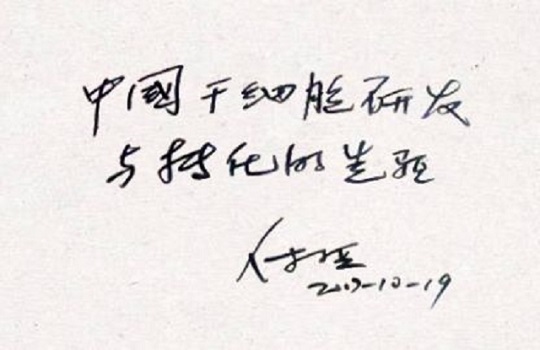 中國干细胞研发
与转化的先驱
2007-10-19